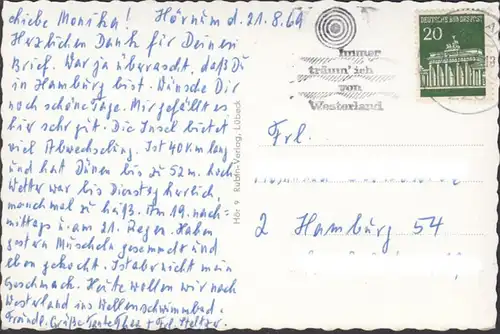 Liebe Monika! Hörnum d. 21.8.69
Herzlichen Dank für Deinen
Brief. War ja überrascht, daß Du
in Hamburg bist. Wünsche Dir
noch schöne Tage. Mir gefällt es
hier sehr gut. Die Insel bietet
viel Abwechslung. Ist 40 km lang
und hat Dünen bis zu 52 m. hoch
Wetter war bis Dienstag herrlich,
manchmal zu heiß. Am 19. nach-
mittags u. am 21. Regen. Haben
gestern Muscheln gesammelt und
eben gekocht. Ist aber nicht mein
Geschmack. Heute wollen wir nach
Westerland ins Wellenschwimmbad.
Freundl. Grüße Tante Thea + Frl.
Hör 9 Verlag, Lübeck
immer
träum' ich
von
Westerland
DEUTSCHE BUNDESPOST
20
Frl.
2 Hamburg 54